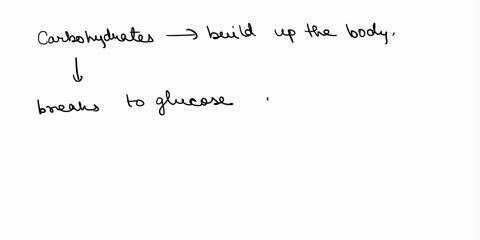 Carbohydrates → build up the body.
↓
breaks to glucose